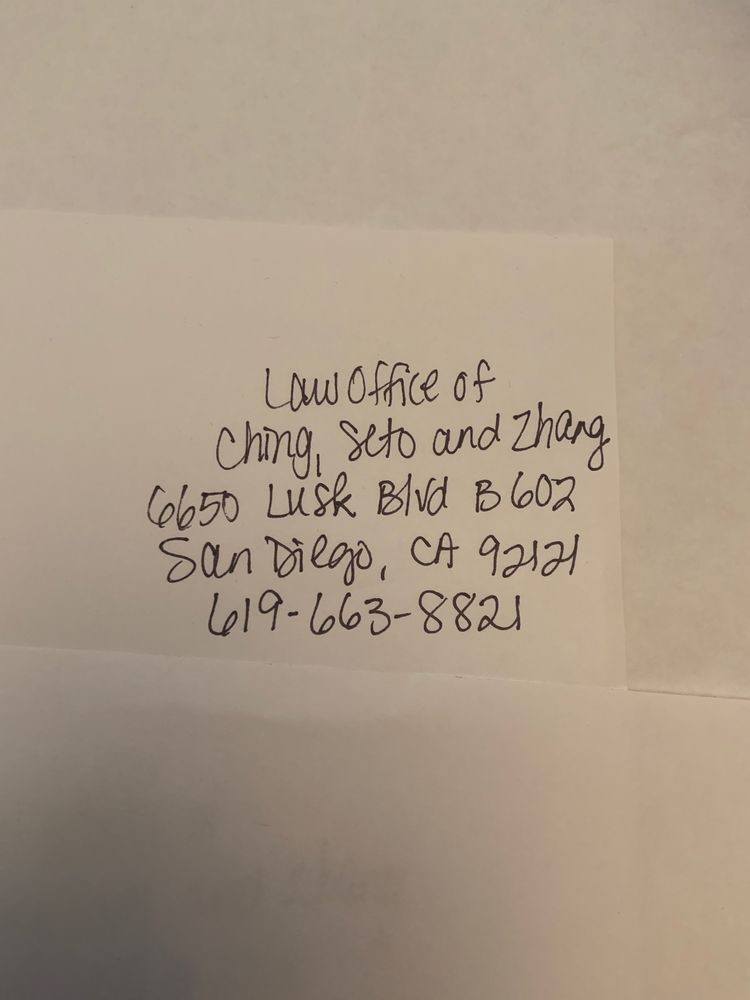 Law Office of
Ching, Seto and Zhang
6650 Lusk Blvd B602
San Diego, CA 92121
619-663-8821